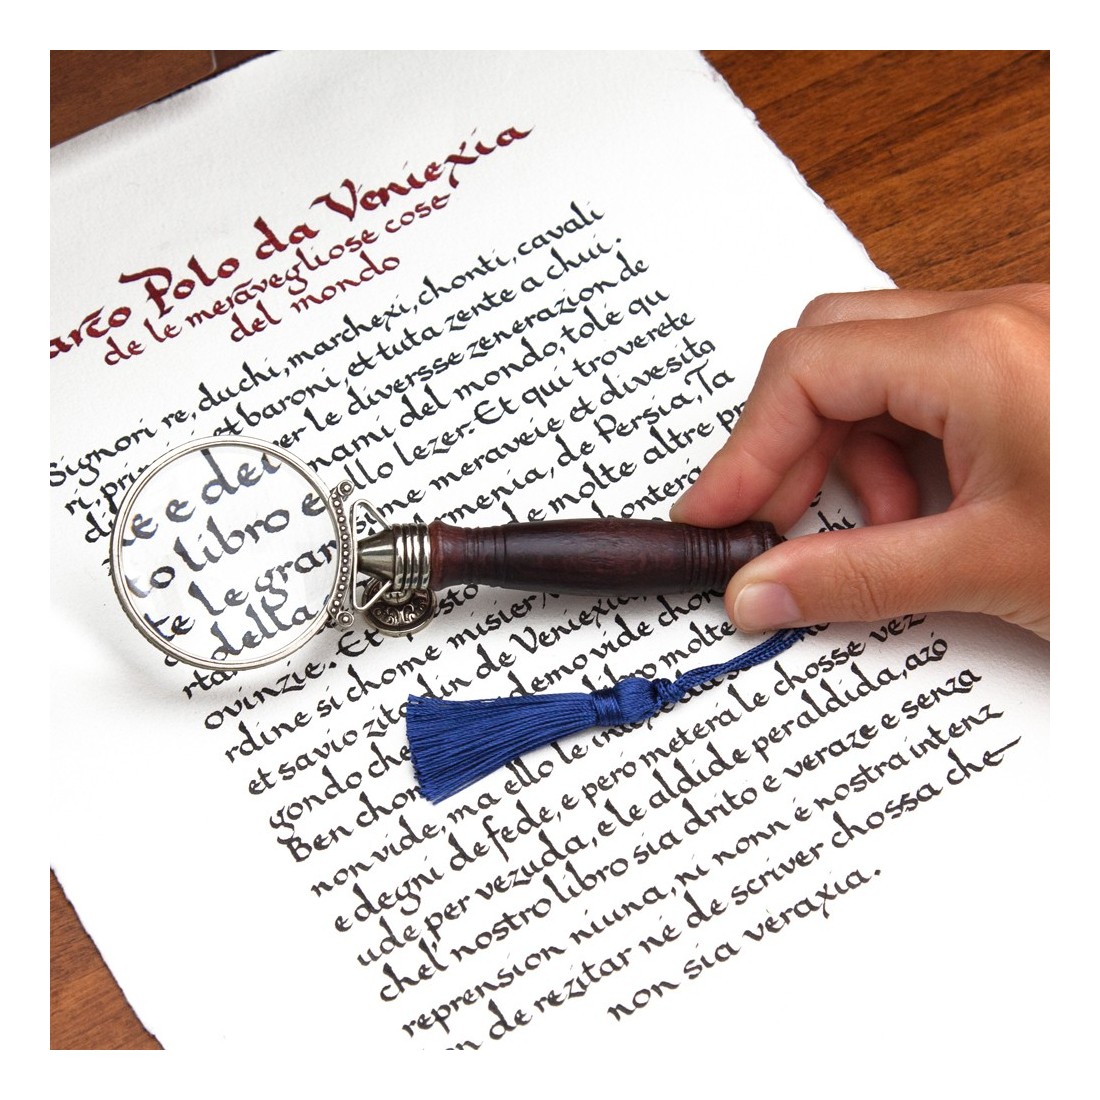 arco Polo da Veniexia
de le meravegliose cose
del mondo
Signori re, duchi, marchexi, chonti, cavali
ri, prin et baroni, et tuta zente a chui.
di per le diversse zenerazion de
e e dei nami del mondo, tolé qu
to libro e llo lezer. Et qui troverete
te le gran sime meraveie et divesita
della rmenia, de Persia, Ta
de molte altre pr
chontera chi
rta
ovinzie. Et sto
rdine si chome misier
et savio zita din de Veniexia, chon
gondo che demo vide molte
Ben chon libro molte
non vide, ma ello le vez
e degni de fede, e pero meterà le chosse
ude per vezuda, e le aldide per aldida, azó
chel' nostro libro sia drito e veraze e senza
reprension niuna, ni nonn è nostra intenz
n de rezitar né de scriver chossa che
non sia veraxia.